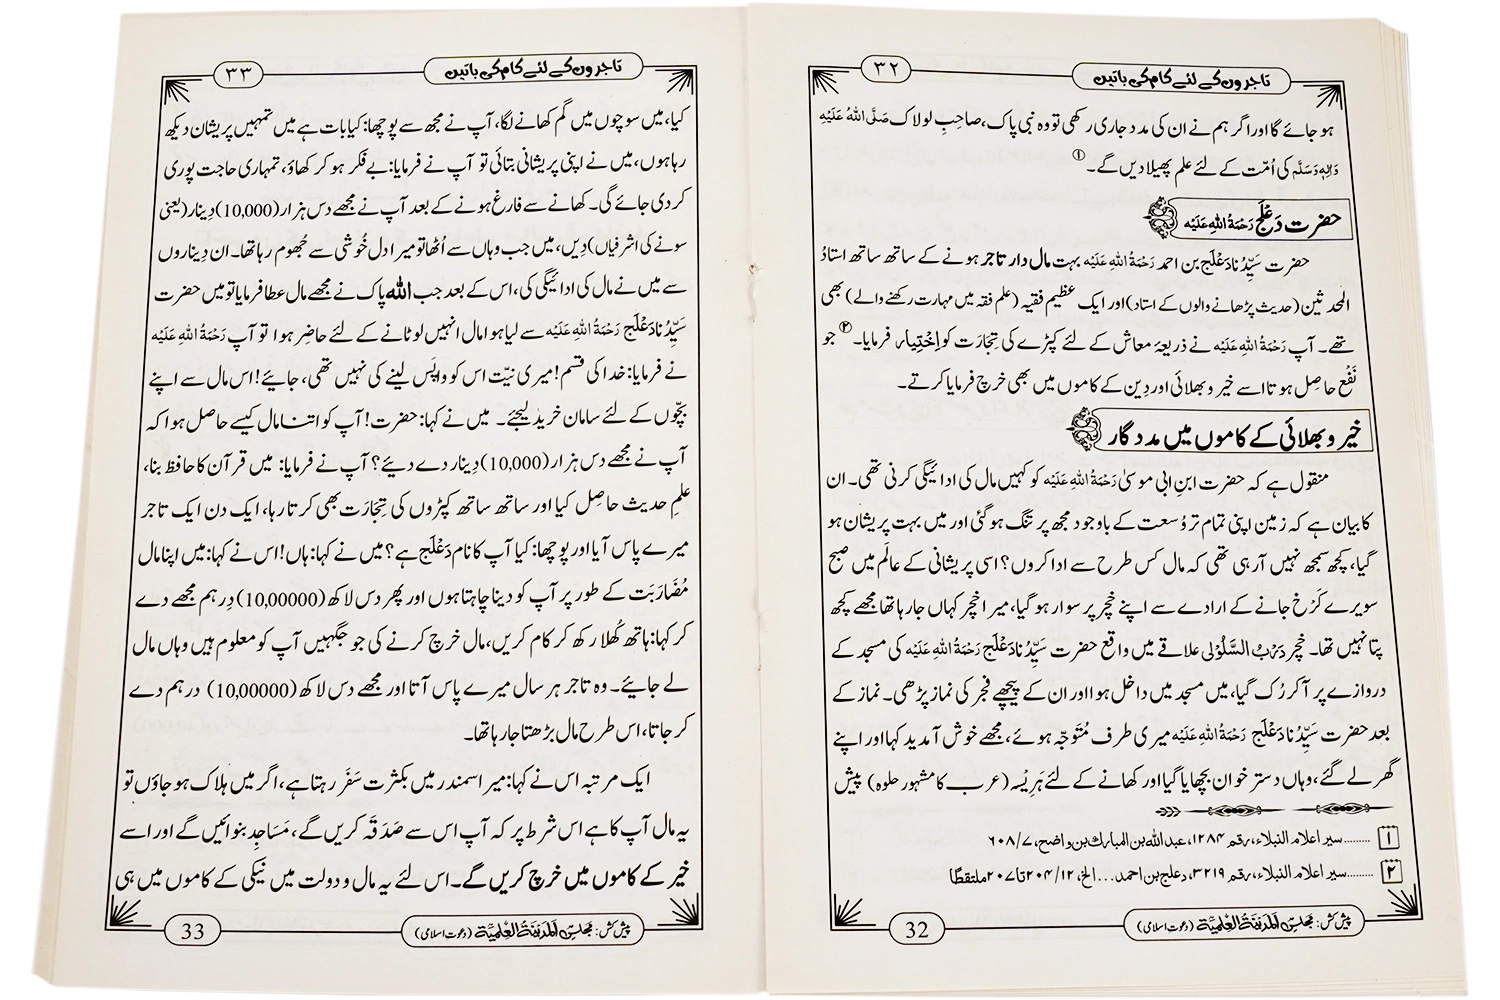 تاجروں کے لئے کام کی باتیں
۳۲
ہو جائے گا اور اگر ہم نے ان کی مدد جاری رکھی تو وہ نبی پاک، صاحبِ لولاک صَلَّی اللہُ عَلَیْہِ
وَاٰلِہٖ وَسَلَّم کی اُمّت کے لئے علم پھیلا دیں گے۔ ①
حضرت دَعْلَج رَحْمَۃُ اللہِ عَلَیْہ
حضرت سَیِّدُنا دَعْلَج بن احمد رَحْمَۃُ اللہِ عَلَیْہ بہت مال دار تاجر ہونے کے ساتھ ساتھ استاذُ
المحدثین (حدیث پڑھانے والوں کے استاد) اور ایک عظیم فقیہ (علم فقہ میں مہارت رکھنے والے) بھی
تھے۔ آپ رَحْمَۃُ اللہِ عَلَیْہ نے ذریعۂ معاش کے لئے کپڑے کی تِجَارَت کو اِخْتِیار فرمایا۔ ② جو
نَفْع حاصل ہوتا اسے خیر و بھلائی اور دِین کے کاموں میں بھی خرچ فرمایا کرتے۔
خیر و بھلائی کے کاموں میں مددگار
منقول ہے کہ حضرت ابنِ ابی موسیٰ رَحْمَۃُ اللہِ عَلَیْہ کو کہیں مال کی ادائیگی کرنی تھی۔ ان
کا بیان ہے کہ زمین اپنی تمام تر وُسعت کے باوجود مجھ پر تنگ ہوگئی اور میں بہت پریشان ہو
گیا، کچھ سمجھ نہیں آرہی تھی کہ مال کس طرح سے ادا کروں؟ اسی پریشانی کے عالَم میں صبح
سویرے کَرْخ جانے کے ارادے سے اپنے خچر پر سوار ہوگیا، میرا خچر کہاں جارہا تھا مجھے کچھ
پتا نہیں تھا۔ خچر دَرْبُ السَّلُوْلِی علاقے میں واقع حضرت سَیِّدُنا دَعْلَج رَحْمَۃُ اللہِ عَلَیْہ کی مسجد کے
دروازے پر آکر رُک گیا، میں مسجد میں داخل ہوا اور ان کے پیچھے فجر کی نماز پڑھی۔ نماز کے
بعد حضرت سَیِّدُنا دَعْلَج رَحْمَۃُ اللہِ عَلَیْہ میری طرف مُتَوَجِّہ ہوئے، مجھے خوش آمدید کہا اور اپنے
گھر لے گئے، وہاں دستر خوان بچھایا گیا اور کھانے کے لئے ہَرِیْسہ (عرب کا مشہور حلوہ) پیش
۱ .........سیر اعلام النبلاء، رقم ۱۲۸۴، عبد اللہ بن المبارک بن واضح، ۷/۶۰۸
۲ .........سیر اعلام النبلاء، رقم ۳۲۱۹، دعلج بن احمد...الخ، ۱۲/۲۰۴ تا ۲۰۷ ملتقطًا
پیش کش: مجلس اَلْمَدِیْنَۃُ الْعِلْمِیَّۃ (دعوتِ اسلامی)
32
تاجروں کے لئے کام کی باتیں
۳۳
کیا، میں سوچوں میں گم کھانے لگا، آپ نے مجھ سے پوچھا: کیا بات ہے میں تمہیں پریشان دیکھ
رہا ہوں، میں نے اپنی پریشانی بتائی تو آپ نے فرمایا: بے فکر ہو کر کھاؤ، تمہاری حاجت پوری
کردی جائے گی۔ کھانے سے فارغ ہونے کے بعد آپ نے مجھے دس ہزار (10,000) دِینار (یعنی
سونے کی اشرفیاں) دِیں، میں جب وہاں سے اُٹھا تو میرا دل خُوشی سے جُھوم رہا تھا۔ ان دِیناروں
سے میں نے مال کی ادائیگی کی، اس کے بعد جب اللہ پاک نے مجھے مال عطا فرمایا تو میں حضرت
سَیِّدُنا دَعْلَج رَحْمَۃُ اللہِ عَلَیْہ سے لیا ہوا مال انہیں لوٹانے کے لئے حاضِر ہوا تو آپ رَحْمَۃُ اللہِ عَلَیْہ
نے فرمایا: خدا کی قسم! میری نیّت اس کو واپَس لینے کی نہیں تھی، جائیے! اس مال سے اپنے
بچّوں کے لئے سامان خرید لیجئے۔ میں نے کہا: حضرت! آپ کو اتنا مال کیسے حاصل ہوا کہ
آپ نے مجھے دس ہزار (10,000) دِینار دے دیئے؟ آپ نے فرمایا: میں قرآن کا حافظ بنا،
علمِ حدیث حاصِل کیا اور ساتھ ساتھ کپڑوں کی تِجَارَت بھی کرتا رہا، ایک دن ایک تاجر
میرے پاس آیا اور پوچھا: کیا آپ کا نام دَعْلَج ہے؟ میں نے کہا: ہاں! اس نے کہا: میں اپنا مال
مُضَارَبَت کے طور پر آپ کو دینا چاہتا ہوں اور پھر دس لاکھ (10,00000) دِرہم مجھے دے
کر کہا: ہاتھ کُھلا رکھ کر کام کریں، مال خرچ کرنے کی جو جگہیں آپ کو معلوم ہیں وہاں مال
لے جائیے۔ وہ تاجر ہر سال میرے پاس آتا اور مجھے دس لاکھ (10,00000) درہم دے
کر جاتا، اس طرح مال بڑھتا جارہا تھا۔
ایک مرتبہ اس نے کہا: میرا سمندر میں بکثرت سَفَر رہتا ہے، اگر میں ہلاک ہوجاؤں تو
یہ مال آپ کا ہے اس شرط پر کہ آپ اس سے صَدَقَہ کریں گے، مَسَاجِد بنوائیں گے اور اسے
خیر کے کاموں میں خرچ کریں گے۔ اس لئے یہ مال و دولت میں نیکی کے کاموں میں ہی
پیش کش: مجلس اَلْمَدِیْنَۃُ الْعِلْمِیَّۃ (دعوتِ اسلامی)
33